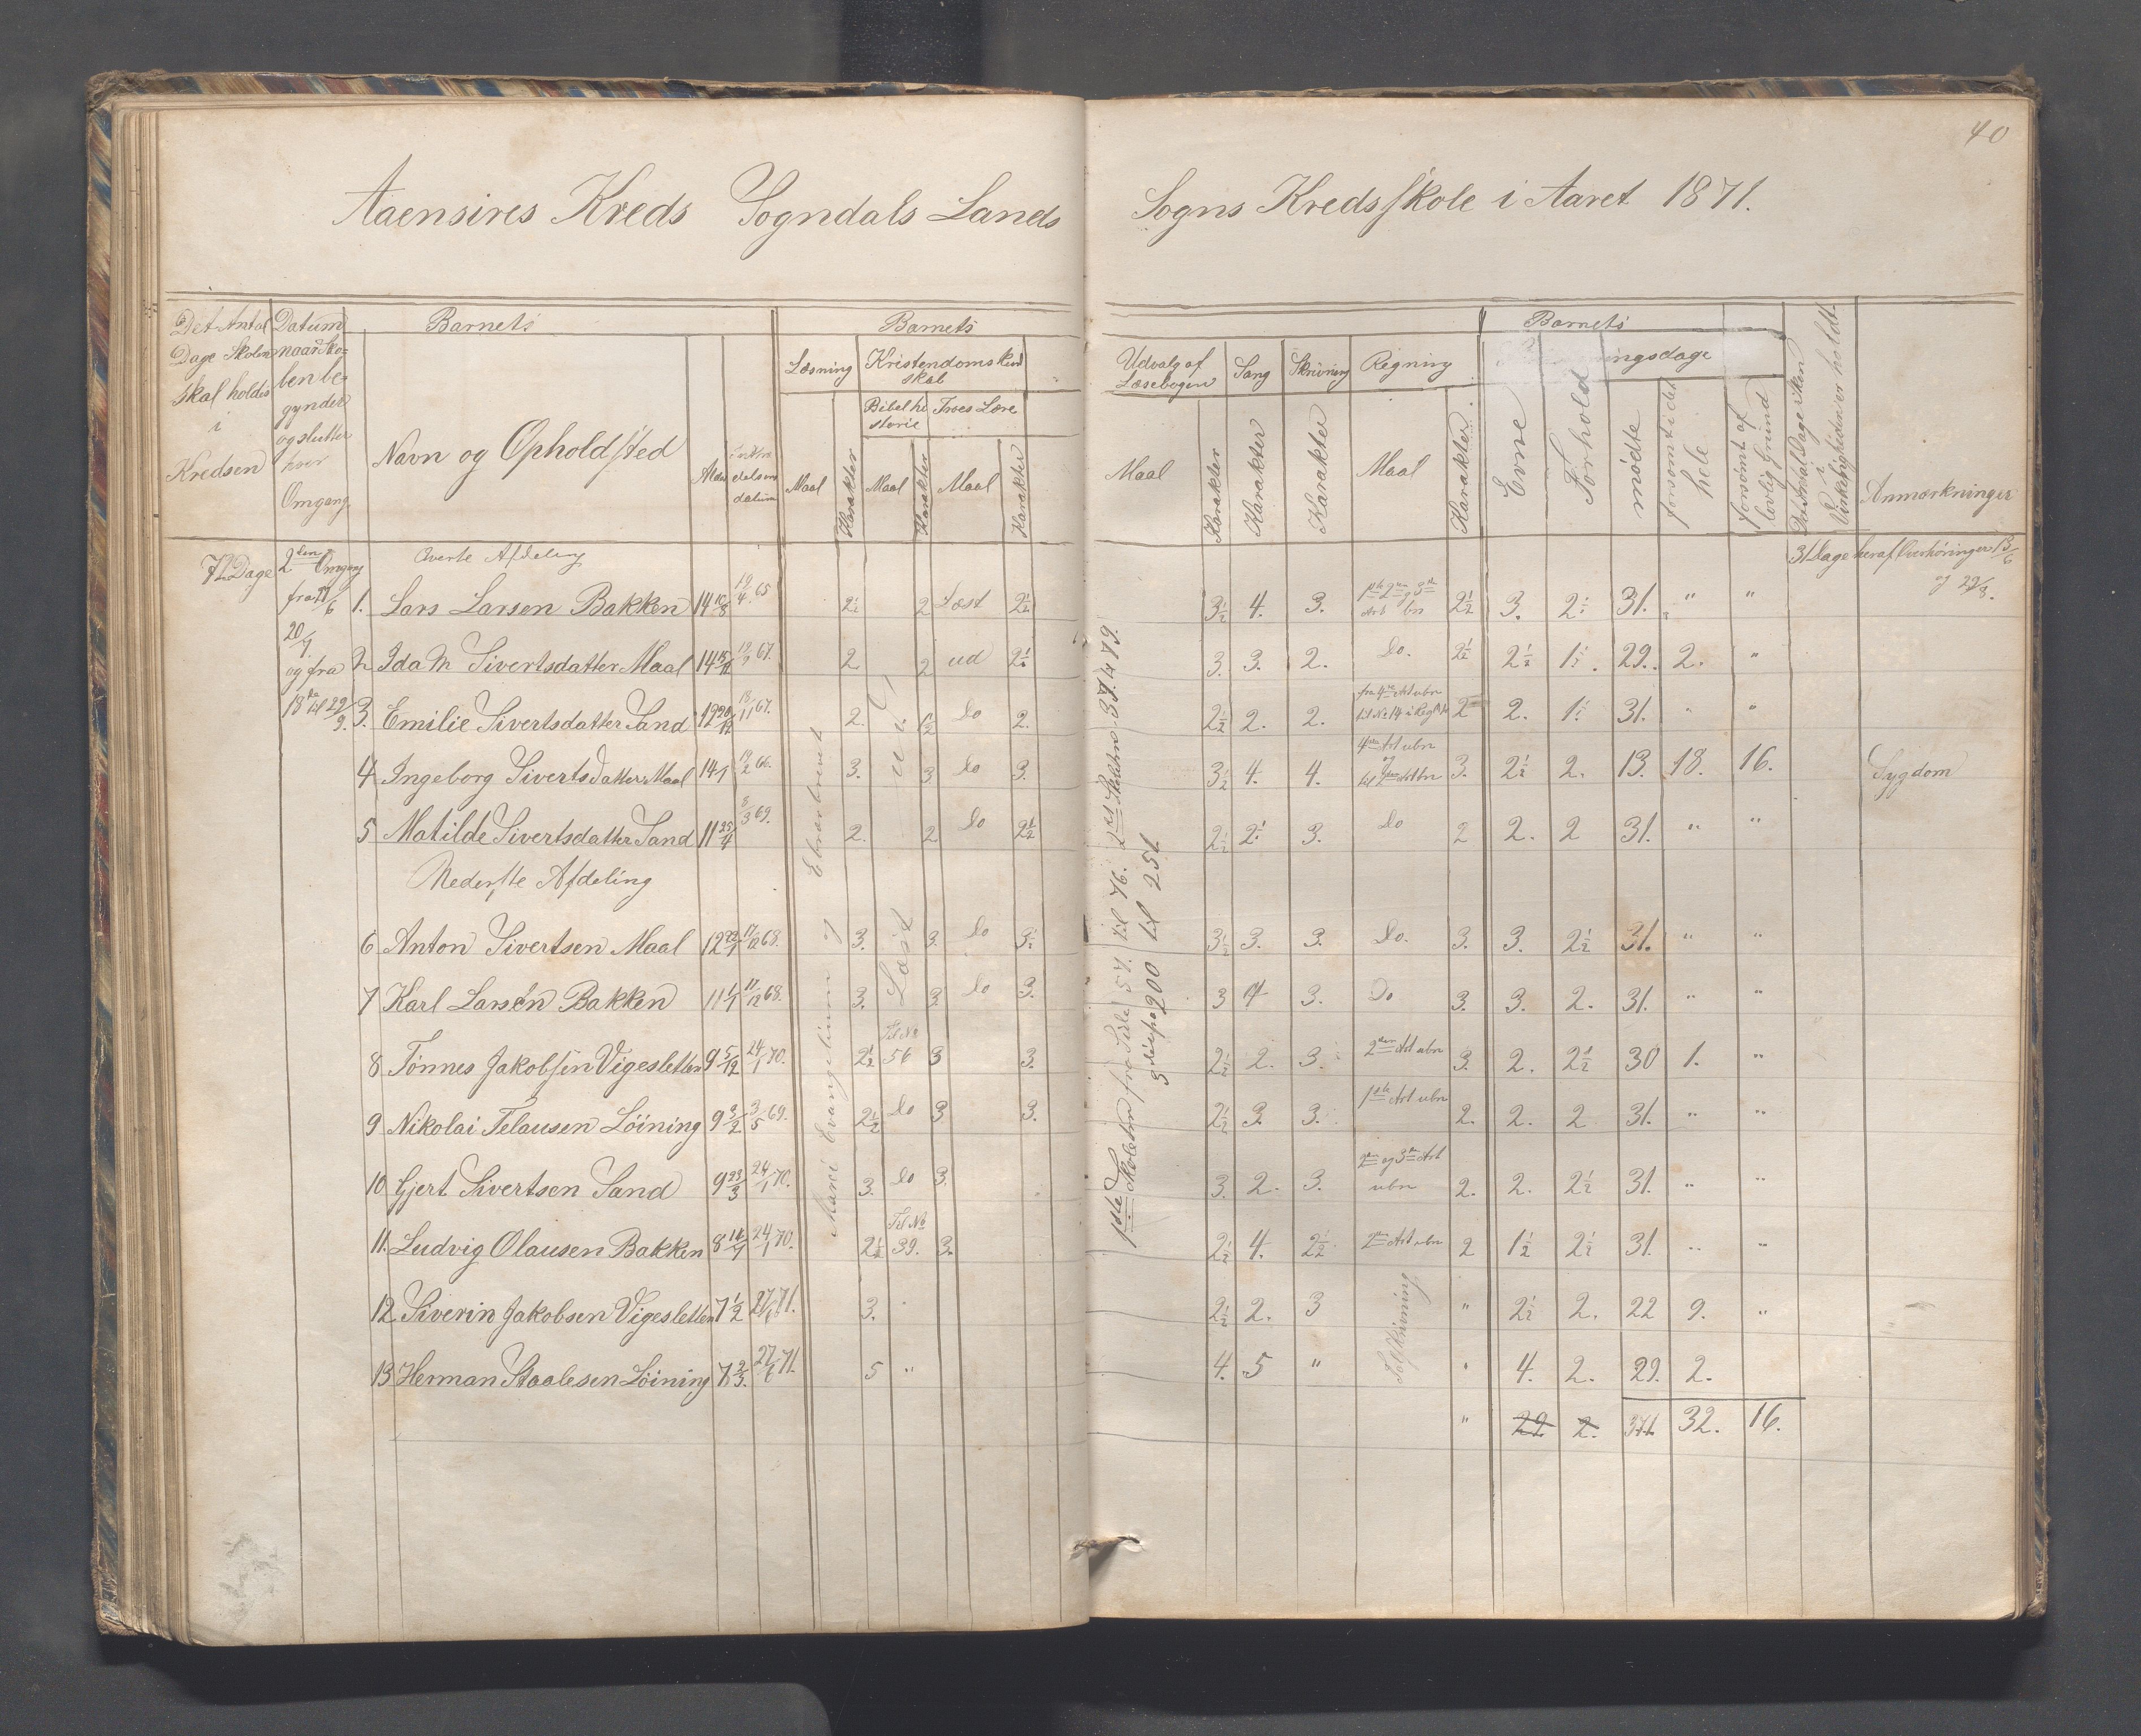 40
Aaensires Kreds Sogndals Lands Sogns Kredsskole i Aaret 1871.
Det Antal Dage Skolen skal holdes i Kredsen
Datum naar Skolen begynder og slutter hver Omgang
Barnets
Navn og Opholdssted
Alder
datum
Barnets
Læsning
Kristendomskundskab
Bibelhistorie
Troes Lære
Maal Karakter Maal Karakter Maal Karakter
Udvalg af Læsebogen
Sang
Skrivning
Regning
Maal Karakter Karakter Karakter Maal Karakter
Barnets
Evne
Forhold
mødte
forsømt i det hele
forsømt af lovlig Grund
Det Antal Dage Skolen i Virkeligheden er holdt
Anmærkninger
72 Dage 2den Omgang
fra 21/6
20/7
og fra
18de til 29/9.
Øverste Afdeling
31 Dage heraf Overhøringer 13/6 og 29/9.
1. Lars Larsen Bakken 14 10/8 19/4 65 2½ 2 Læst 2½ 3½ 4. 3. 1ste 2den og 3die Art ubn 2½ 3. 2½ 31. " "
2 Ida M Sivertsdatter Maal 14 15/12 19/9 67. 2. 2 ud 2½ 3. 3. 2. Do. 2½ 2½ 1½. 29. 2. "
3. Emilie Sivertsdatter Sand 12 20/12 18/11 67. 2. 1½ Do 2. 2½ 2. 2. fra 4de Art ubn til No 14 i Regl 2 2. 1½ 31. " "
4 Ingeborg Sivertsdatter Maal 14 1 19/2 66. 3. 3. Do 3. 3½ 4. 4. 4de Art ubn og til 2den Art bn 3. 2½ 2. 13. 18. 16. Sygdom
5 Matilde Sivertsdatter Sand 11 25/4 8/3 69. 2. 2 Do 2½ 2½ 2½ 3. Do 2 2. 2 31. " "
Nederste Afdeling
6 Anton Sivertsen Maal 12 22/1 17/12 68. 3. 3. Do 3½ 3½ 3. 3. Do. 3. 3. 2½ 31. " "
7 Karl Larsen Bakken 11 1/1 11/12 68. 3. 3. Do 3. 3 4 3. Do 3. 3. 2. 31. " "
8 Tønnes Jakobsen Vigesletten 9 5/12 24/1 70. 2½ Til No 56 3 3. 2½ 2. 3. 2den Art ubn 3. 2. 2½ 30 1. "
9 Nikolai Telausen Løining 9 3/2 3/5 69. 2½ Do 3 3. 2½ 3. 3. 1ste Art ubn 2. 2. 2 31. " "
10 Gjert Sivertsen Sand 9 23/3 24/1 70. 3. Do 3. 3. 2. 3. 2den og 3die Art ubn 2. 2. 2½ 31. " "
11. Ludvig Olausen Bakken 8 14/7 24/1 70. 2½ Til No 39. 3. 2½ 4. 2½ 2den Art ubn 2 1½ 2½ 31. " "
12 Siverin Jakobsen Vigesletten 7 1/2 27/1 71. 3. 2½ 2. 3 " 2½ 2. 22 9. "
13 Herman Staalesen Løining 7 2/3. 27/1 71. 5 " 4. 5 " " 4. 2. 29. 2.
" 22 2. 371. 32. 16.
Marci Evangelium og Ebræerbrevet
Læst ud
1ste Skoletrin fra Side 57. til 76. 2det Skoletrin 37. til 79.
3die fra 200 til 251.
Talskrivning